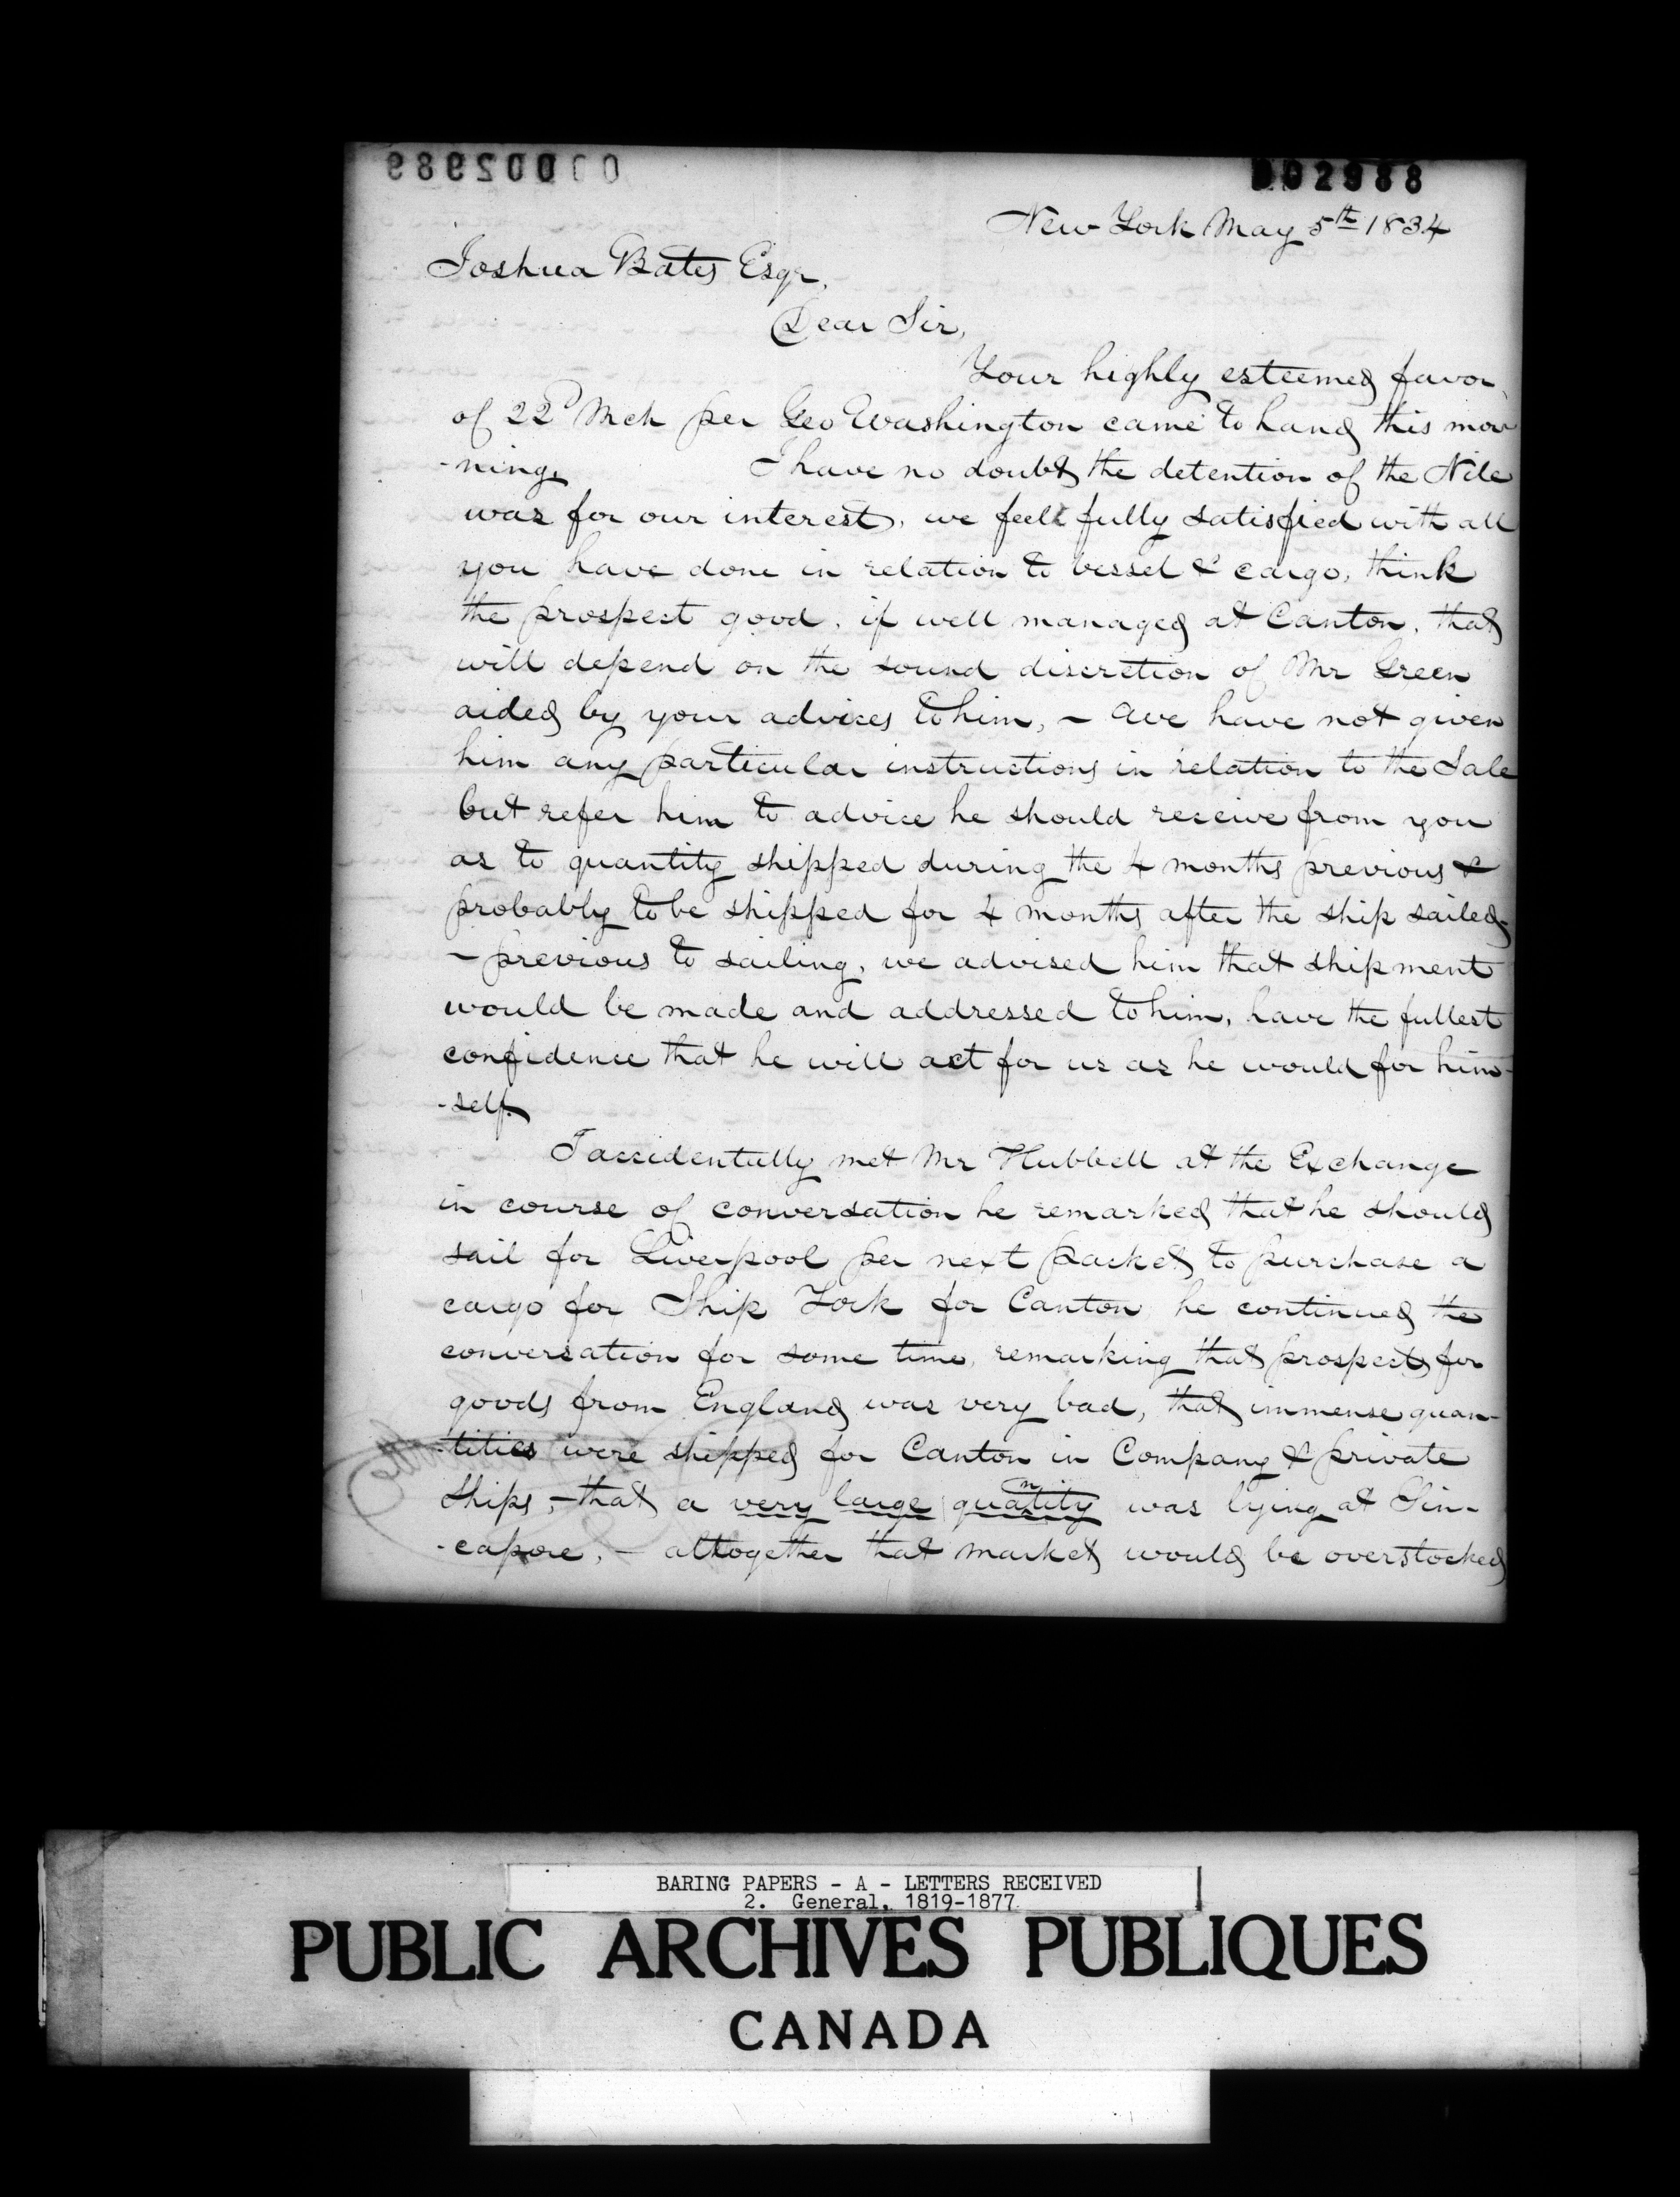 002988
0002989
New York May 5th 1834
Joshua Bates Esqr.
Dear Sir,
Your highly esteemed favor
of 22d Mch per Geo Washington came to hand this mor
-ning. I have no doubt the detention of the Nile
was for our interest, we feel fully satisfied with all
you have done in relation to vessel & cargo, think
the prospect good, if well managed at Canton, that
will depend on the sound discretion of Mr Green
aided by your advices to him, - We have not given
him any particular instructions in relation to the Sale
but refer him to advice he should receive from you
as to quantity shipped during the 4 months previous &
probably to be shipped for 4 months after the ship sailed-
- previous to sailing, we advised him that shipment
would be made and addressed to him, have the fullest
confidence that he will act for us as he would for him-
-self.
I accidentully met Mr Hubbell at the Exchange
in course of conversation he remarked that he should
sail for Liverpool per next packet to purchase a
cargo for Ship York for Canton he continued the
conversation for some time, remarking that prospects for
goods from England was very bad, that immense quan-
-tities were shipped for Canton in Company & private
Ships, - that a very large quantity was lying at Sin-
-capore, - altogether that market would be overstocked
BARING PAPERS - A - LETTERS RECEIVED
2. General, 1819-1877
PUBLIC ARCHIVES PUBLIQUES
CANADA